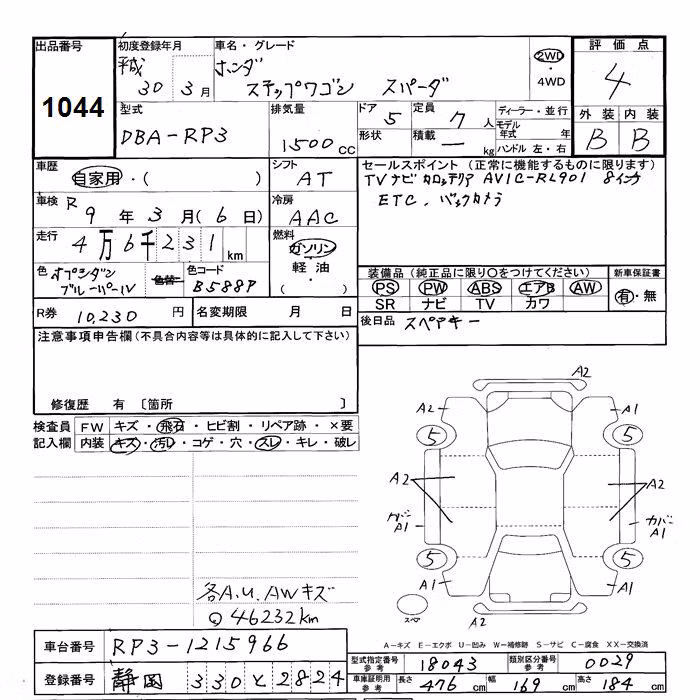 出品番号 初度登録年月 車名・グレード 評価点
1044 平成 30年 3月 ホンダ ステップワゴン スパーダ 2WD ・ 4WD 4
型式 排気量 ドア 定員 ディーラー・並行 外装 内装
DBA-RP3 1500 cc 5 7人 モデル年式 年 B B
形状 積載 - kg ハンドル 左・右
車歴 シフト セールスポイント (正常に機能するものに限ります)
自家用・( ) AT TVナビ カロッテリア AVIC-RL901 8インチ
車検 R 9年 3月 (6日) 冷房 AAC ETC. バックカメラ
走行 4万6千231km 燃料 ガソリン・軽油・( )
色 オブシダンブルーパール 色替 色コード B588P
装備品 (純正品に限り○をつけてください) 新車保証書
PS PW ABS エアB AW 有・無
SR ナビ TV カワ
R券 10,230円 名変期限 月 日 後日品 スペアキー
注意事項申告欄 (不具合内容等は具体的に記入して下さい)
修復歴 有 〔箇所 〕
検査員 FW キズ・飛石・ヒビ割・リペア跡・×要
記入欄 内装 キズ・汚レ・コゲ・穴・スレ・キレ・破レ
A2
A2 A1
5 5
A2 A2
カバー A1 カバー A1
5 5
A1 A1
スペア A2
各A.U.AWキズ
Q 46232km
A-キズ E-エクボ U-凹み W-補修跡 S-サビ C-腐食 XX-交換済
車台番号 RP3-1215966 型式指定番号 参考 18043 類別区分番号 参考 0029
登録番号 静岡 330 と 2824 車庫証明用 参考 長さ 476cm 幅 169cm 高さ 184cm